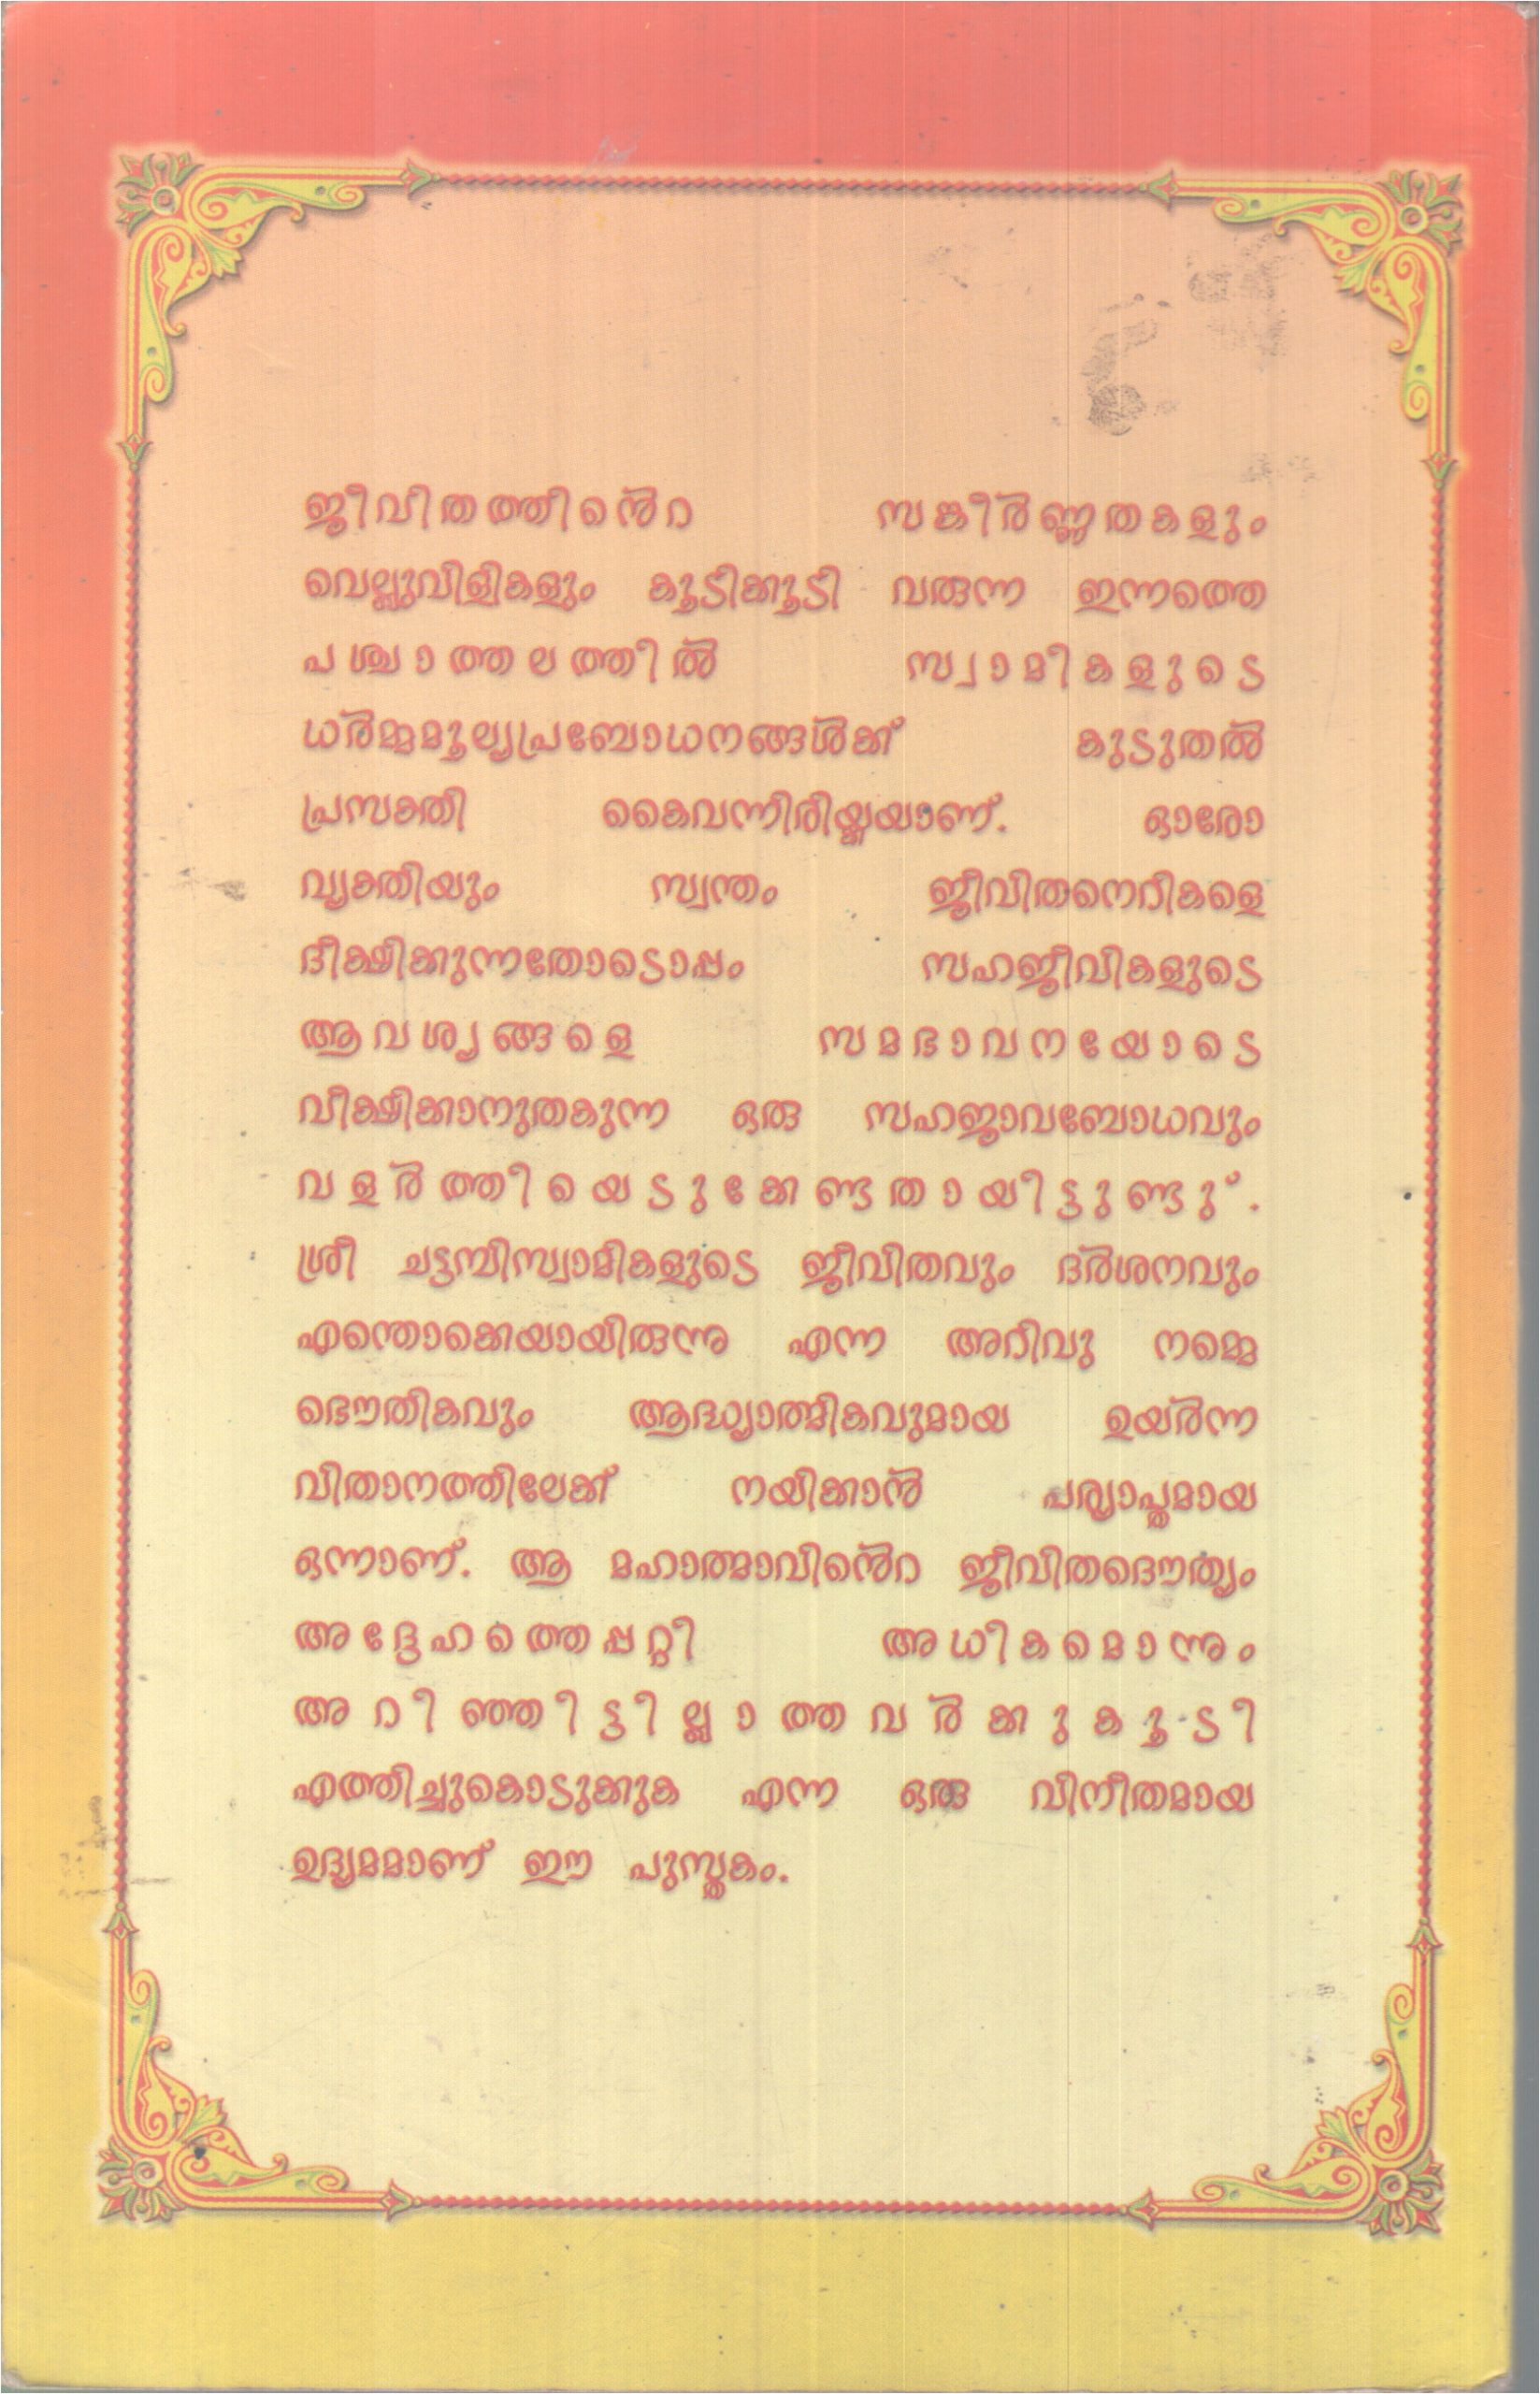 ജീവിതത്തിൻെറ സങ്കീർണ്ണതകളും
വെല്ലുവിളികളും കൂടിക്കൂടി വരുന്ന ഇന്നത്തെ
പശ്ചാത്തലത്തിൽ സ്വാമികളുടെ
ധർമ്മമൂല്യപ്രബോധനങ്ങൾക്ക് കുടുതൽ
പ്രസക്തി കൈവന്നിരിയ്ക്കയാണ്. ഓരോ
വ്യക്തിയും സ്വന്തം ജീവിതനെറികളെ
ദീക്ഷിക്കുന്നതോടൊപ്പം സഹജീവികളുടെ
ആവശ്യങ്ങളെ സമഭാവനയോടെ
വീക്ഷിക്കാനുതകുന്ന ഒരു സഹജാവബോധവും
വളർത്തിയെടുക്കേണ്ടതായിട്ടുണ്ടു്.
ശ്രീ ചട്ടമ്പിസ്വാമികളുടെ ജീവിതവും ദർശനവും
എന്തൊക്കെയായിരുന്നു എന്ന അറിവു നമ്മെ
ഭൌതികവും ആദ്ധ്യാത്മികവുമായ ഉയർന്ന
വിതാനത്തിലേക്ക് നയിക്കാൻ പര്യാപ്തമായ
ഒന്നാണ്. ആ മഹാത്മാവിൻെറ ജീവിതദൌത്യം
അദ്ദേഹത്തെപ്പറ്റി അധികമൊന്നും
അറിഞ്ഞിട്ടില്ലാത്തവർക്കുകൂടി
എത്തിച്ചുകൊടുക്കുക എന്ന ഒരു വിനീതമായ
ഉദ്യമമാണ് ഈ പുസ്തകം.